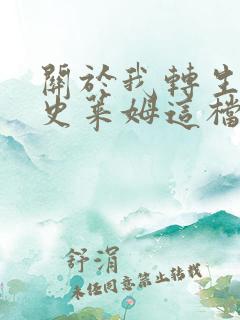 關於我轉生
史萊姆這檔
舒涓
未經同意禁止轉載